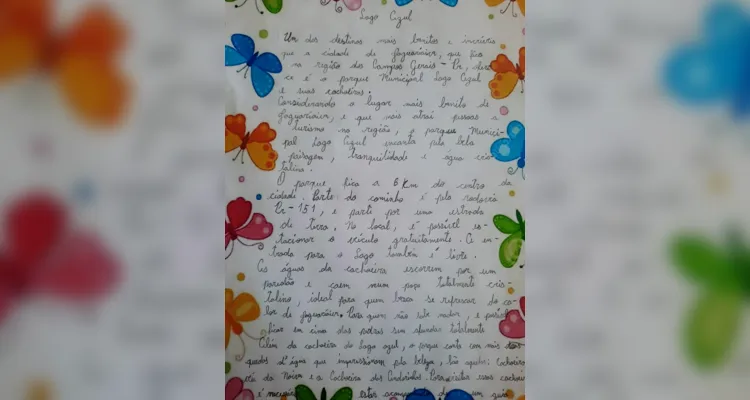 Lago Azul
Um dos destinos mais bonitos e incríveis
que a cidade de Jaguariaíva, que fica
na região dos Campos Gerais - Pr, ofere
ce é o parque Municipal Lago Azul
e suas cachoeiras.
Considerando o lugar mais bonito de
Jaguariaíva, e que mais atrai pessoas a
turismo na região, o parque Munici-
pal Lago Azul encanta pela bela
paisagem, tranquilidade e água cris
talina.
O parque fica a 6 Km do centro da
cidade. Parte do caminho é pela rodovia
Pr-151, e parte por uma estrada
de terra. No local, é possível es-
tacionar o veículo gratuitamente. A en-
trada para o Lago também é livre.
As águas da cachoeira escorrem por um
paredão e caem num poço totalmente cris-
talino, ideal para quem busca se refrescar do ca-
lor de Jaguariaíva. Para quem não sabe nadar, é possível
ficar em cima das pedras sem afundar totalmente
Além da cachoeira do Lago azul, o parque conta com mais duas
quedas d'água que impressionam pela beleza, São aquelas: Cachoeira
Véu da Noiva e a Cachoeira das Andorinhas. Para visitar essas cachoei
é necessário estar acompanhado de um guia